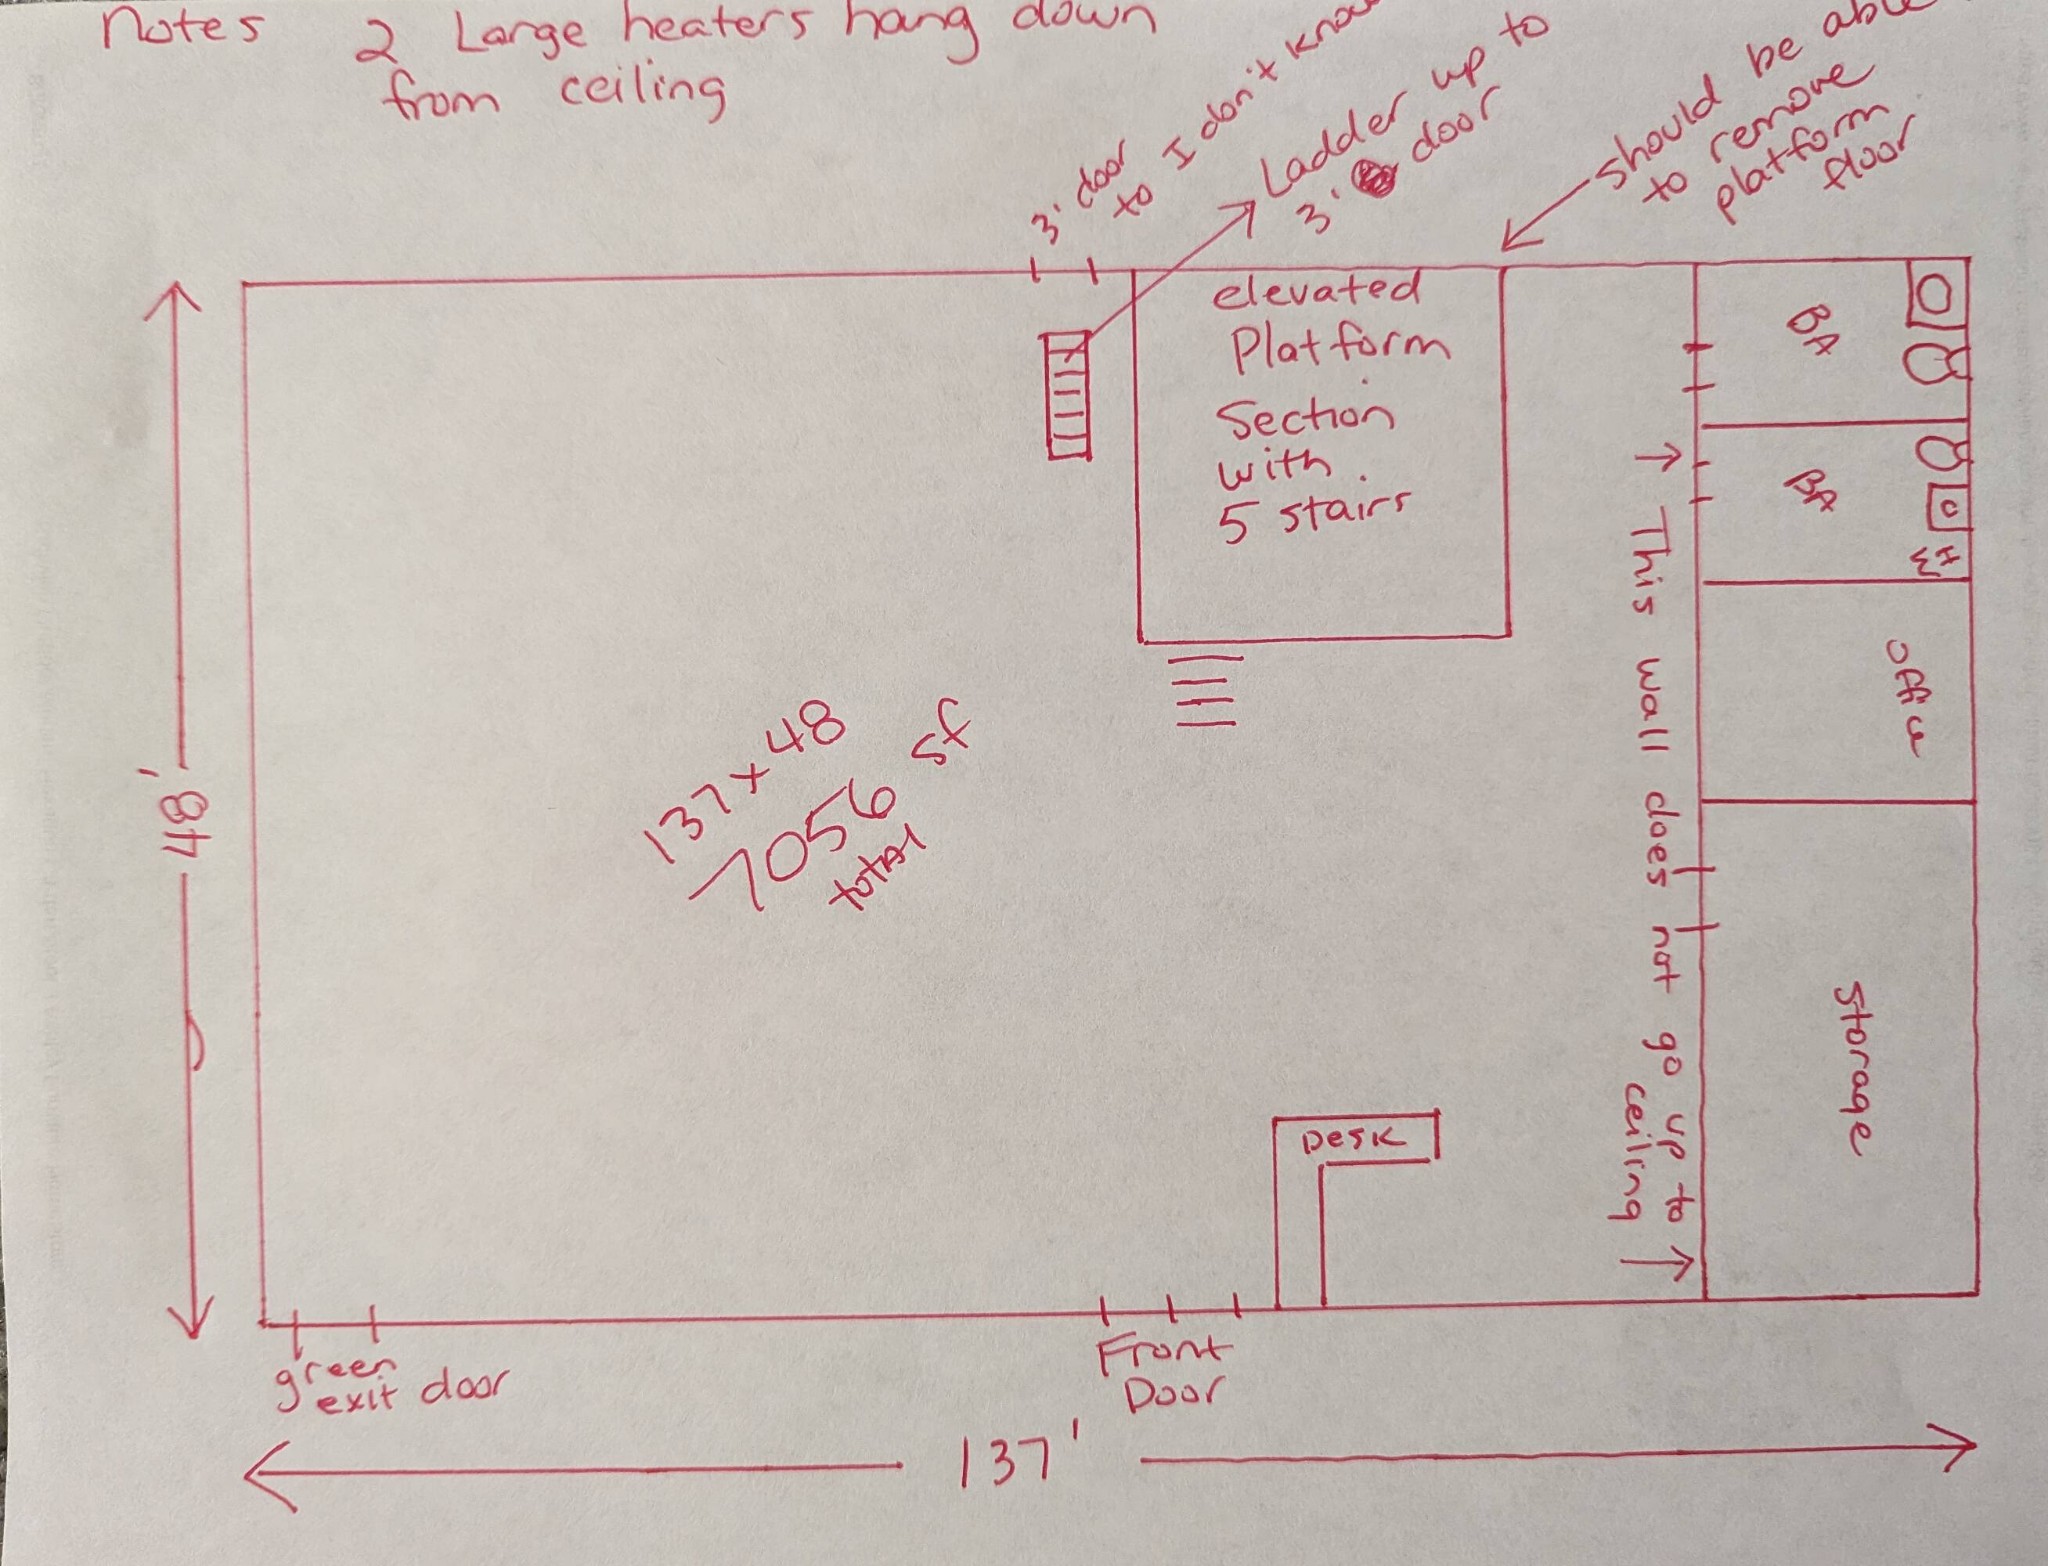 Notes 2 Large heaters hang down
from ceiling
3' door
to I don't know
Ladder up to
3' door
should be able
to remove
platform
floor
elevated
Platform
Section
with
5 stairs
BA
BA
WH
office
Storage
→ This wall does not go up to
ceiling →
48'
137 x 48
7056 sf
total
DESK
green
exit door
Front
Door
137'